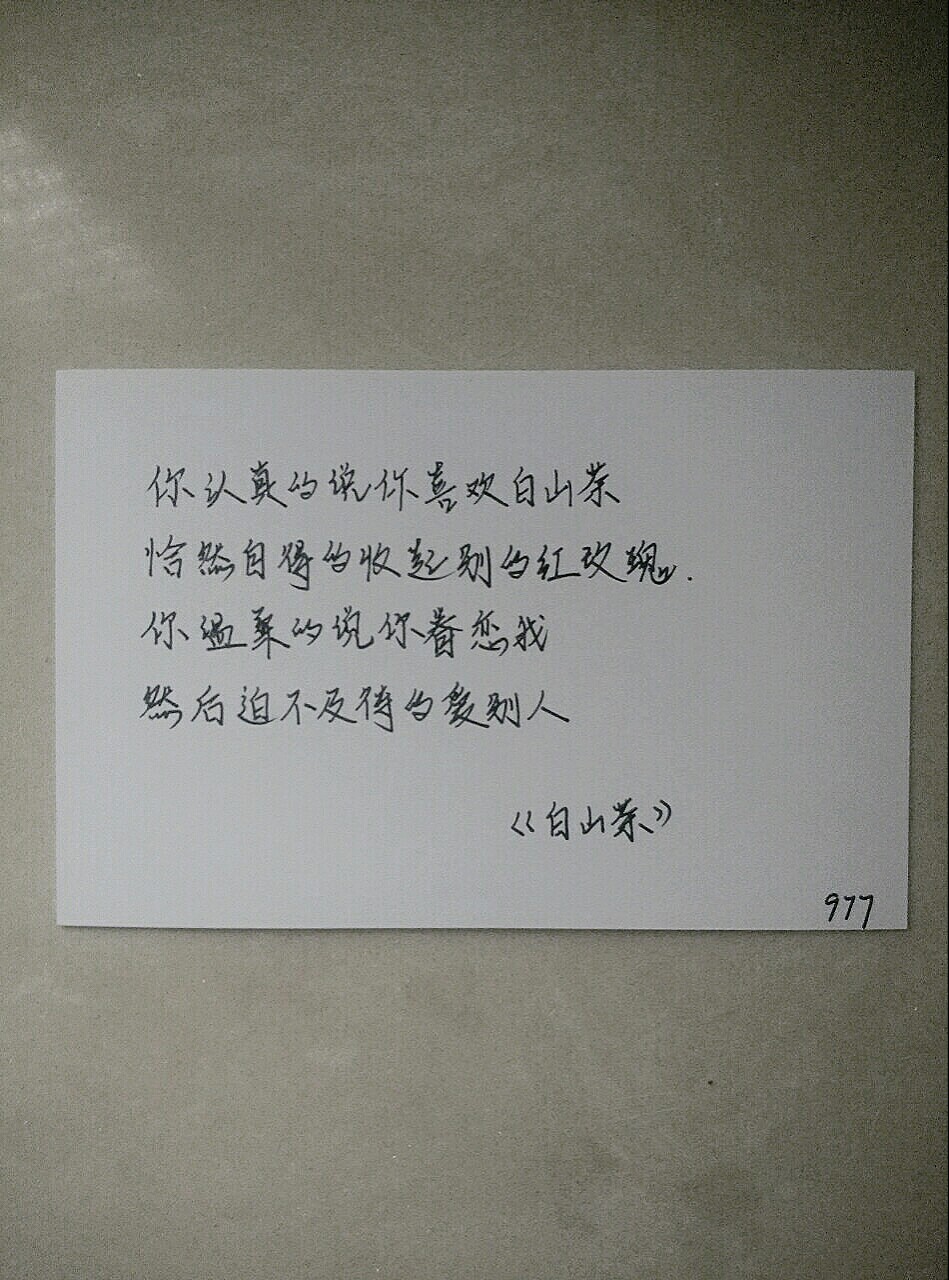 你认真的说你喜欢白山茶
恰然自得的收起别的红玫瑰.
你温柔的说你眷恋我
然后迫不及待的爱别人
《白山茶》
977